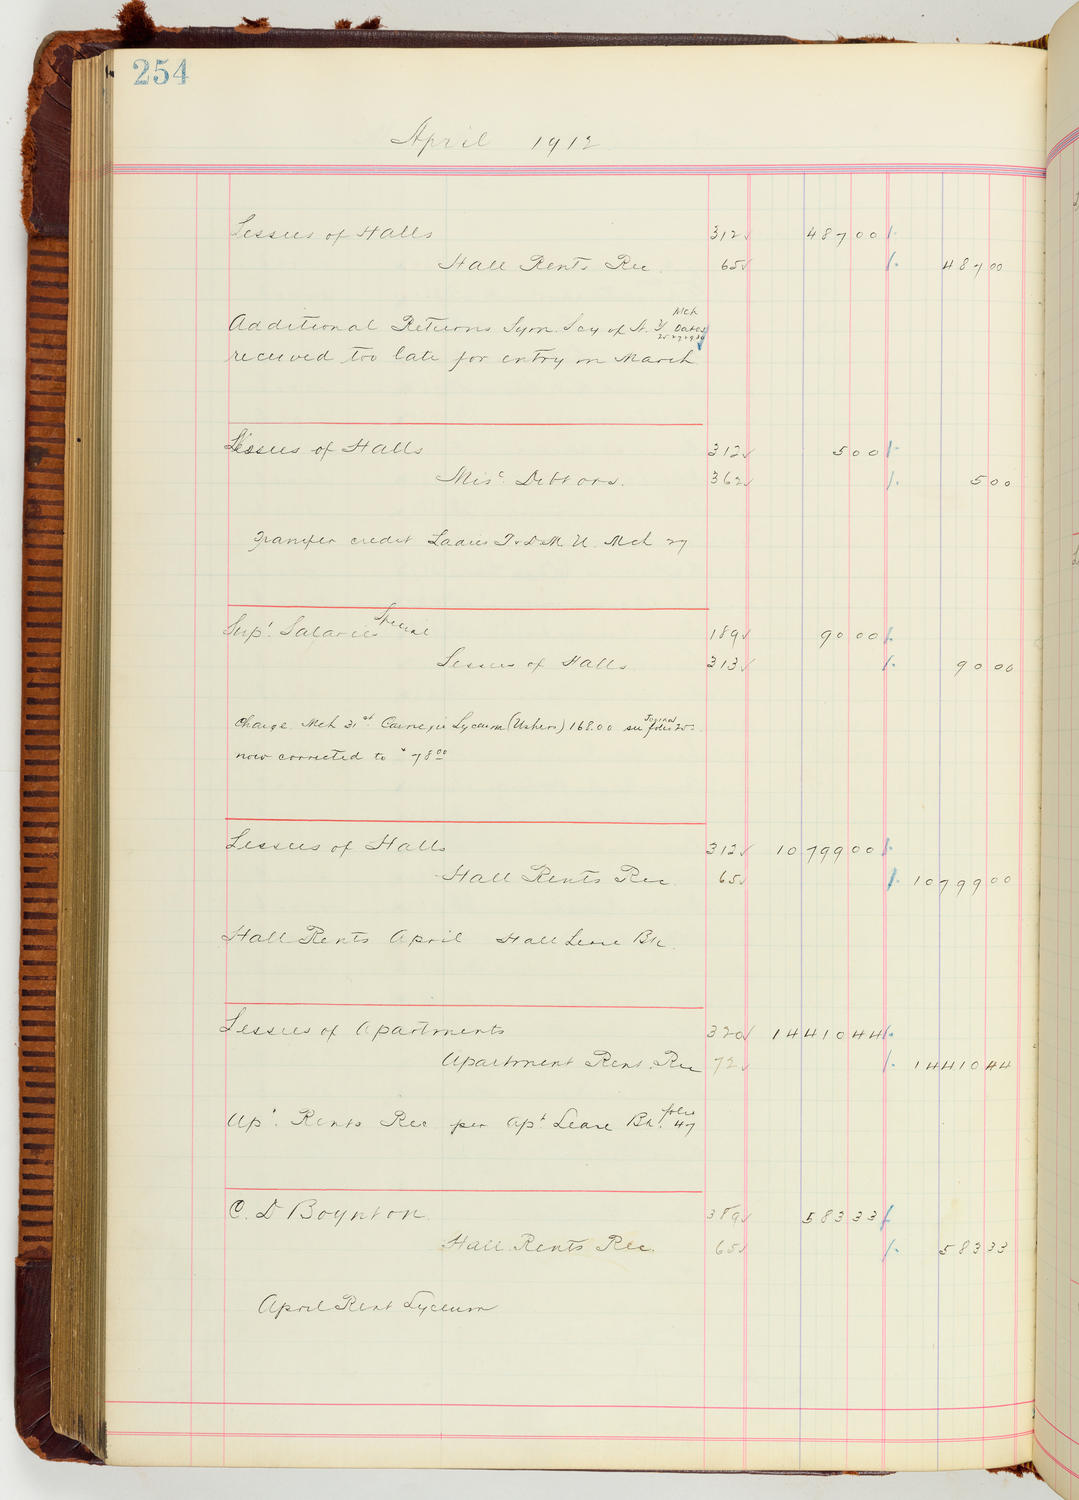 254
April 1912
Lessees of Halls 312 487 00
Hall Rents Rec. 65 487 00
Mch
Additional Returns Sym. Socy of N. Y. Dates
received too late for entry in March
Lessees of Halls 312 5 00
Misc. Debtors. 362 5 00
Transfer credit Ladies M. U. Mch 27
Supt. Salaries Special 189 90 00
Lessees of Halls 313 90 00
Charge Mch 31st Carnegie Lyceum (Ushers) 168.00 see Journal folio
now corrected to " 78 00
Lessees of Halls 312 10799 00
Hall Rents Rec. 65 10799 00
Hall Rents April Hall Lease Bk.
Lessees of Apartments 320 14410 44
Apartment Rent. Rec 72 14410 44
Apt. Rents Rec per Apt Lease Bk. folio 47
C. D Boynton. 389 583 33
Hall Rents Rec. 65 583 33
April Rent Lyceum